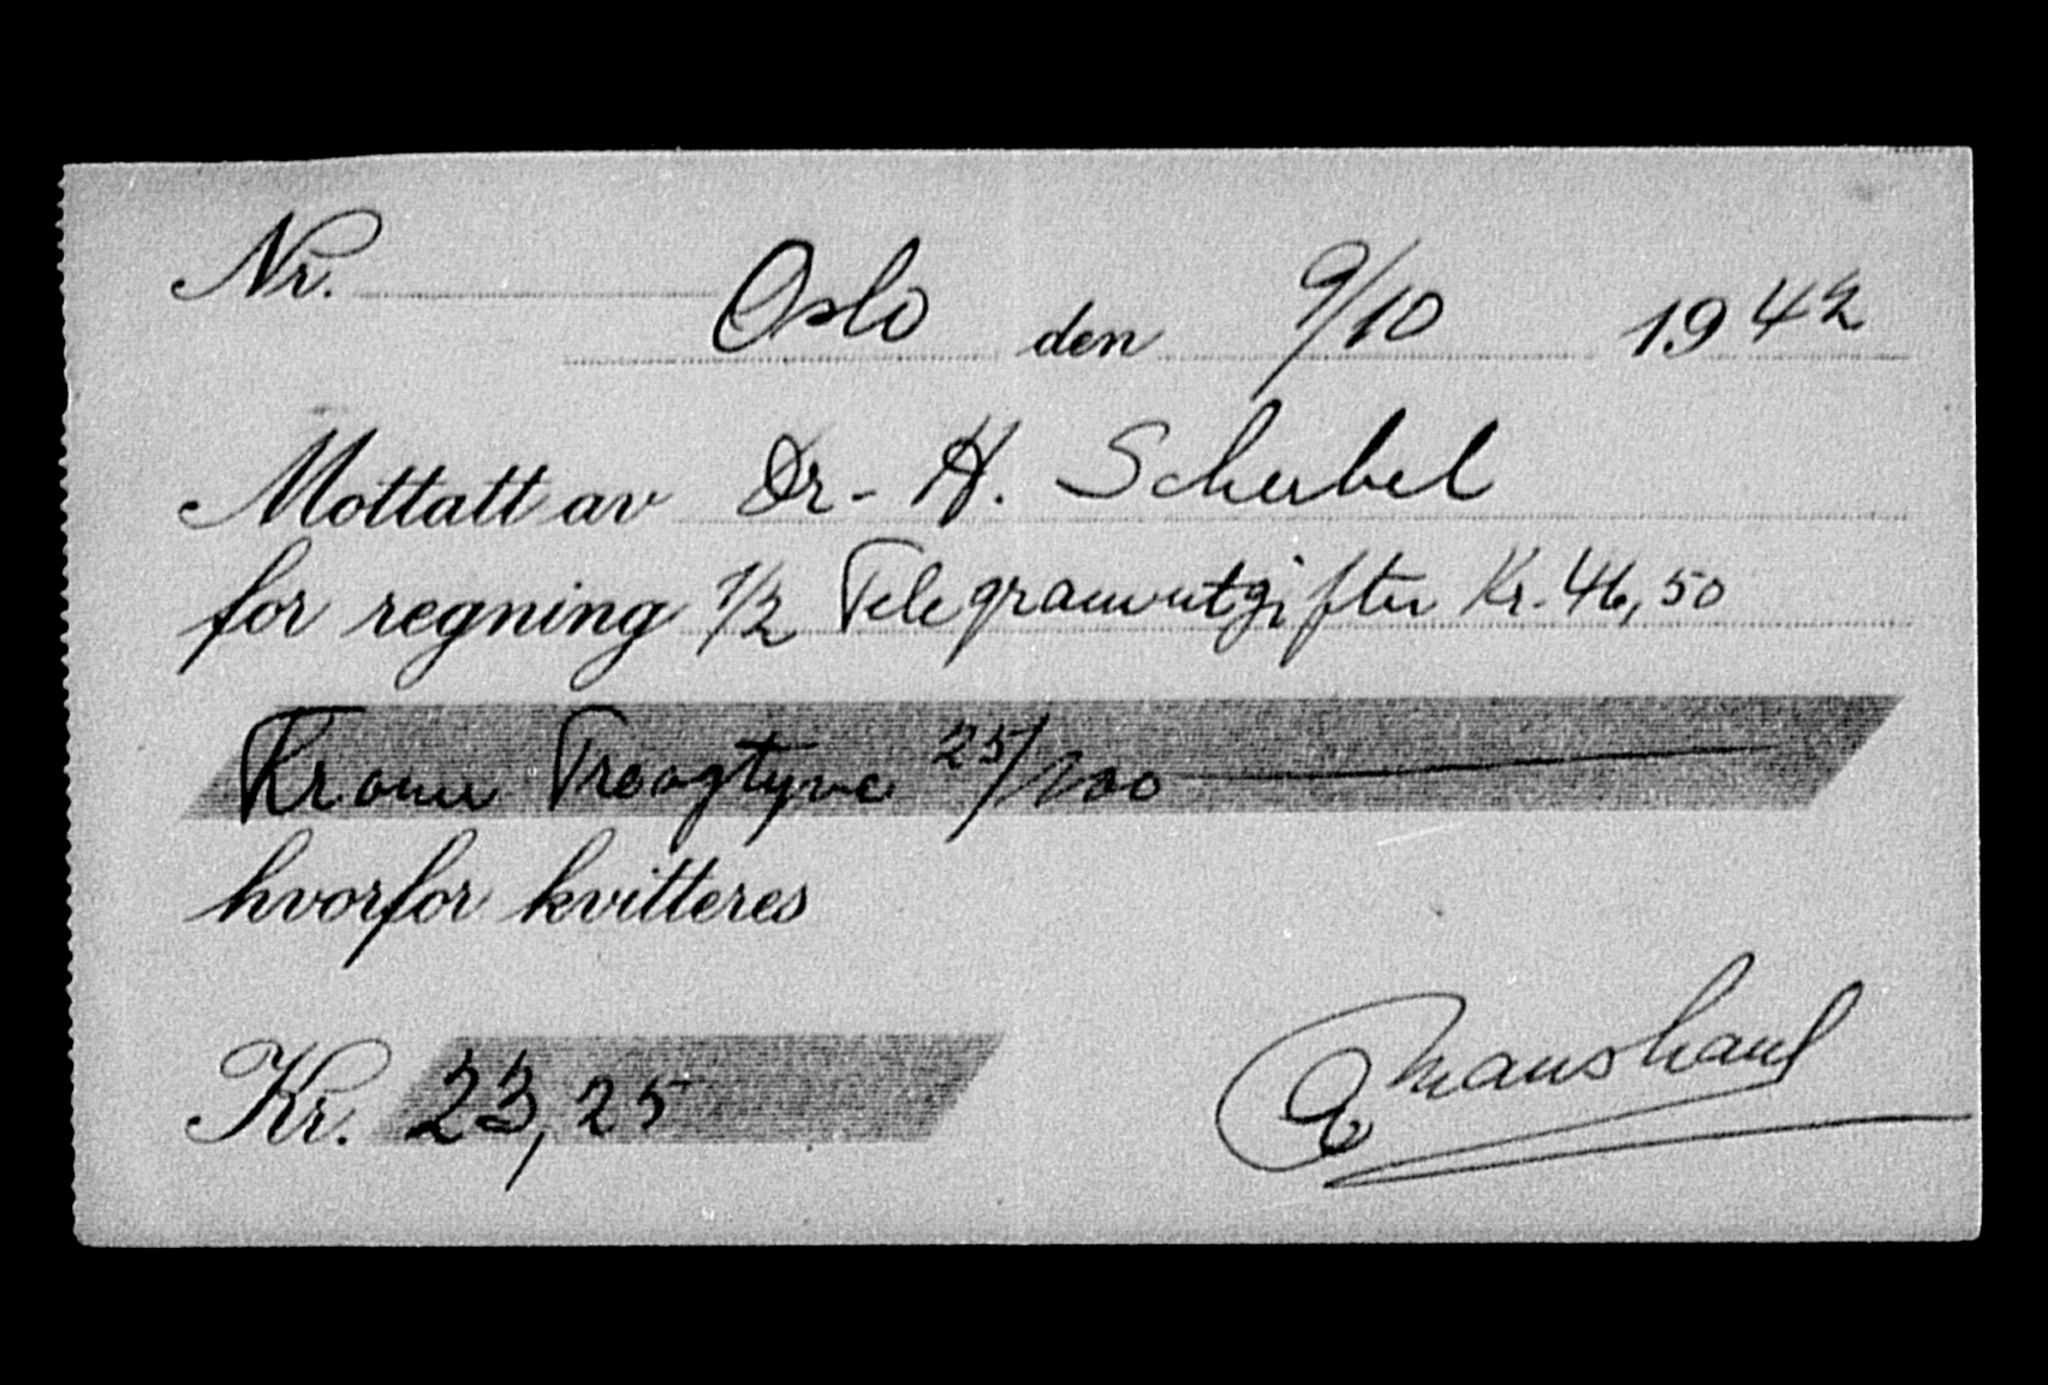 Nr.
Oslo den 9/10 1942
Mottatt av Dr. H. Scheibel
for regning 1/2 Telegramutgifter Kr. 46,50
Kroner Treogtyve 25/100
hvorfor kvitteres
Kr. 23,25